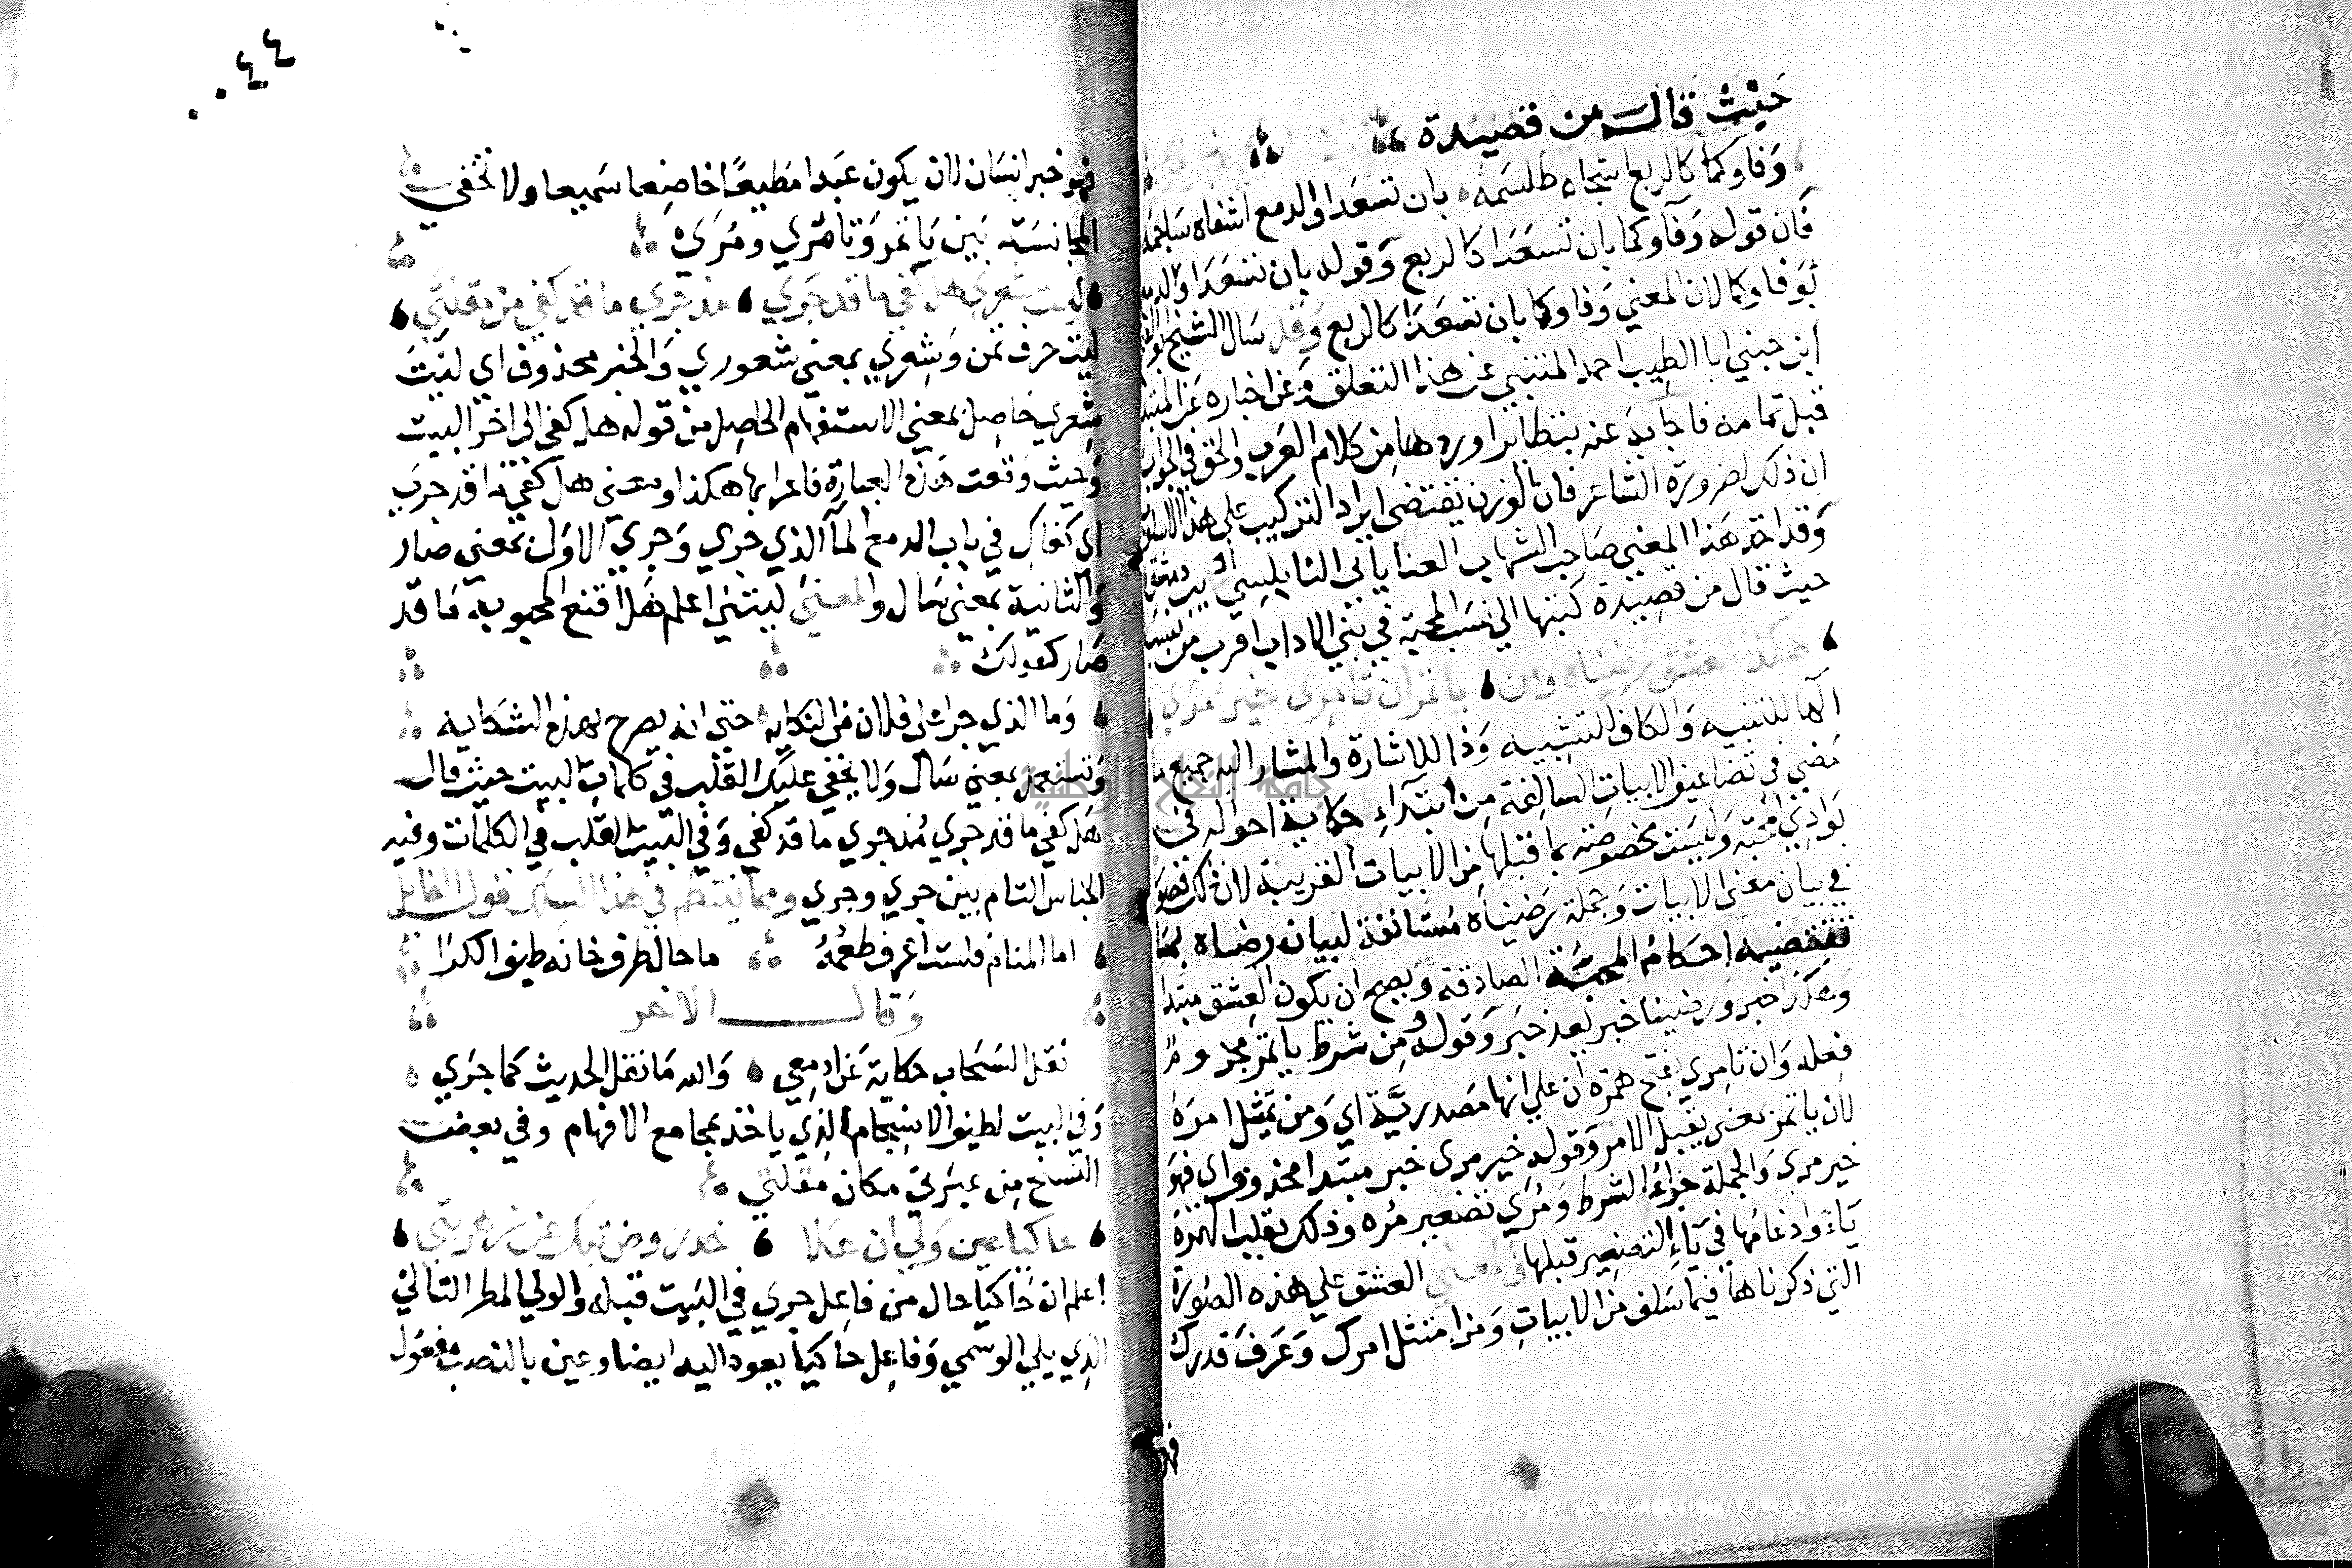 حيث قال من قصيدة
وفاوكما كالربع شجاه طلسمه بان تسعدا والدمع اشفاه ساجمه
فان قوله وفاوكما بان تسعدا كالربع وقوله بان تسعدا والدمع
بوفاوكما لان المعني وفاوكما بان تسعدا كالربع وقد سال الشيخ ابو الفتح
ابن جني ابا الطيب احمد المتنبي عن هذا التعلق وعن اخباره عن المبتدا
قبل تمامه فاجابه عنه بنظاير اوردها من كلام العرب والحق في الجواب
ان ذلك لضرورة الشاعر فان الوزن يقتضي ايراد التركيب علي هذا الاسلوب
وقد اخذ هذا المعني صاحب الشهاب العناياتي النابلسي اديب دمشق
حيث قال من قصيدة كتبتها الي نسب المحبة في بني الاداب اقرب من نسب
هكذا العشق رضيناه ومن ياتمر ان تامري خير مري
الها للتنبيه والكاف للتشبيه وذا للاشارة والمشار اليه جميع ما
مضي في تضاعيف الابيات السالفة من ابتداء حكاية احواله في
بوادي محبته وليست مخصوصة بما قبلها من الابيات القريبة لان ذلك قصور
في بيان معني الابيات وجملة رضيناه مستانفة لبيان رضاه بما
تقتضيه احكام المحبة الصادقة ويصح ان يكون العشق مبتدا
وهكذا خبر ورضينا خبر بعد خبر وقوله ومن شرط ياتمر مجزوم
فعله وان تامري بفتح همزه ان علي انها مصدرية اي ومن تمثل امره
لان ياتمر بمعني يقبل الامر وقوله خير مري خبر مبتدا محذوف اي فهو
خير مري والجملة جواء الشرط ومري تصغير مره وذلك بقلب الهمزة
ياء وادغامها في ياء التصغير قبلها في معني العشق علي هذه الصورة
التي ذكرناها فيما سلف من الابيات ومن امتثل امرك وعرف قدرك
فهو
٠٠٤٤
فهو خير انسان لان يكون عبدا مطيعا خاضعا سميعا ولا تخفي
المجانسة بين ياتمر وتامري ومري
ليت شعري هل كفي ما قد جري مذ جري ما قد كفي من مقلتي
ليت حرف تمن وشعري بمعني شعوري والخبر محذوف اي ليت
شعري حاصل بمعني الاستفهام الحاصل من قوله هل كفي الي اخر البيت
وحيث وقعت هذه العبارة فاعرابها هكذا ومعني هل كفي ما قد جري
اي كفاك في باب الدمع لما الذي جري وجري الاول بمعني صار
والثانية بمعني سال والمعني ليتني اعلم هل اقنع المحبوب ما قد
صار كقولك
وما الذي جرا لي فلان من النكايه حتي انه يصرح بهذه الشكاية
وتستعمل بمعني سال ولا يخفي عليك القلب في كلمات البيت حيث قال
هل كفي ما قد جري مذ جري ما قد كفي وفي البيت القلب في الكلمات وفيه
الجناس التام بين جري وجري ومما ينتظم في هذا السلك قول القايل
اما المنام فلست اعرف طعمه ما حال طرف خانه طيف الكرا
وقال الاخر
نقل السحاب حكاية عن ادمعي والله ما نقل الحديث كما جري
وفي البيت لطيف الانسجام الذي ياخذ بمجامع الافهام وفي بعض
النسخ من عبرتي مكان مقلتي
حاكيا عين ولي ان علا خد روض تبك عن زهر تبي
اعلم ان حاكيا حال من فاعل جري في البيت قبله والولي المطر التالي
الذي يلي الوسمي وفاعل حاكيا يعود اليه ايضا وعين بالنصب مفعول
جامعة النجاح الوطنية